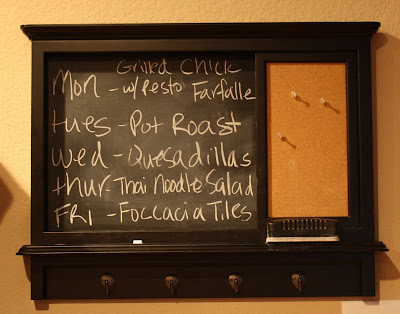 Grilled Chick
Mon - w/ Pesto Farfalle
tues - Pot Roast
wed - Quesadillas
thur - Thai Noodle Salad
FRI - Foccacia Tiles